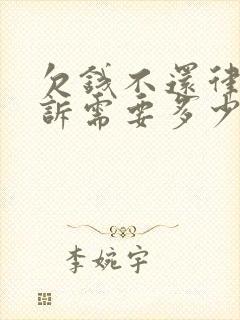 欠錢不還律
訴需要多少
李婉宇